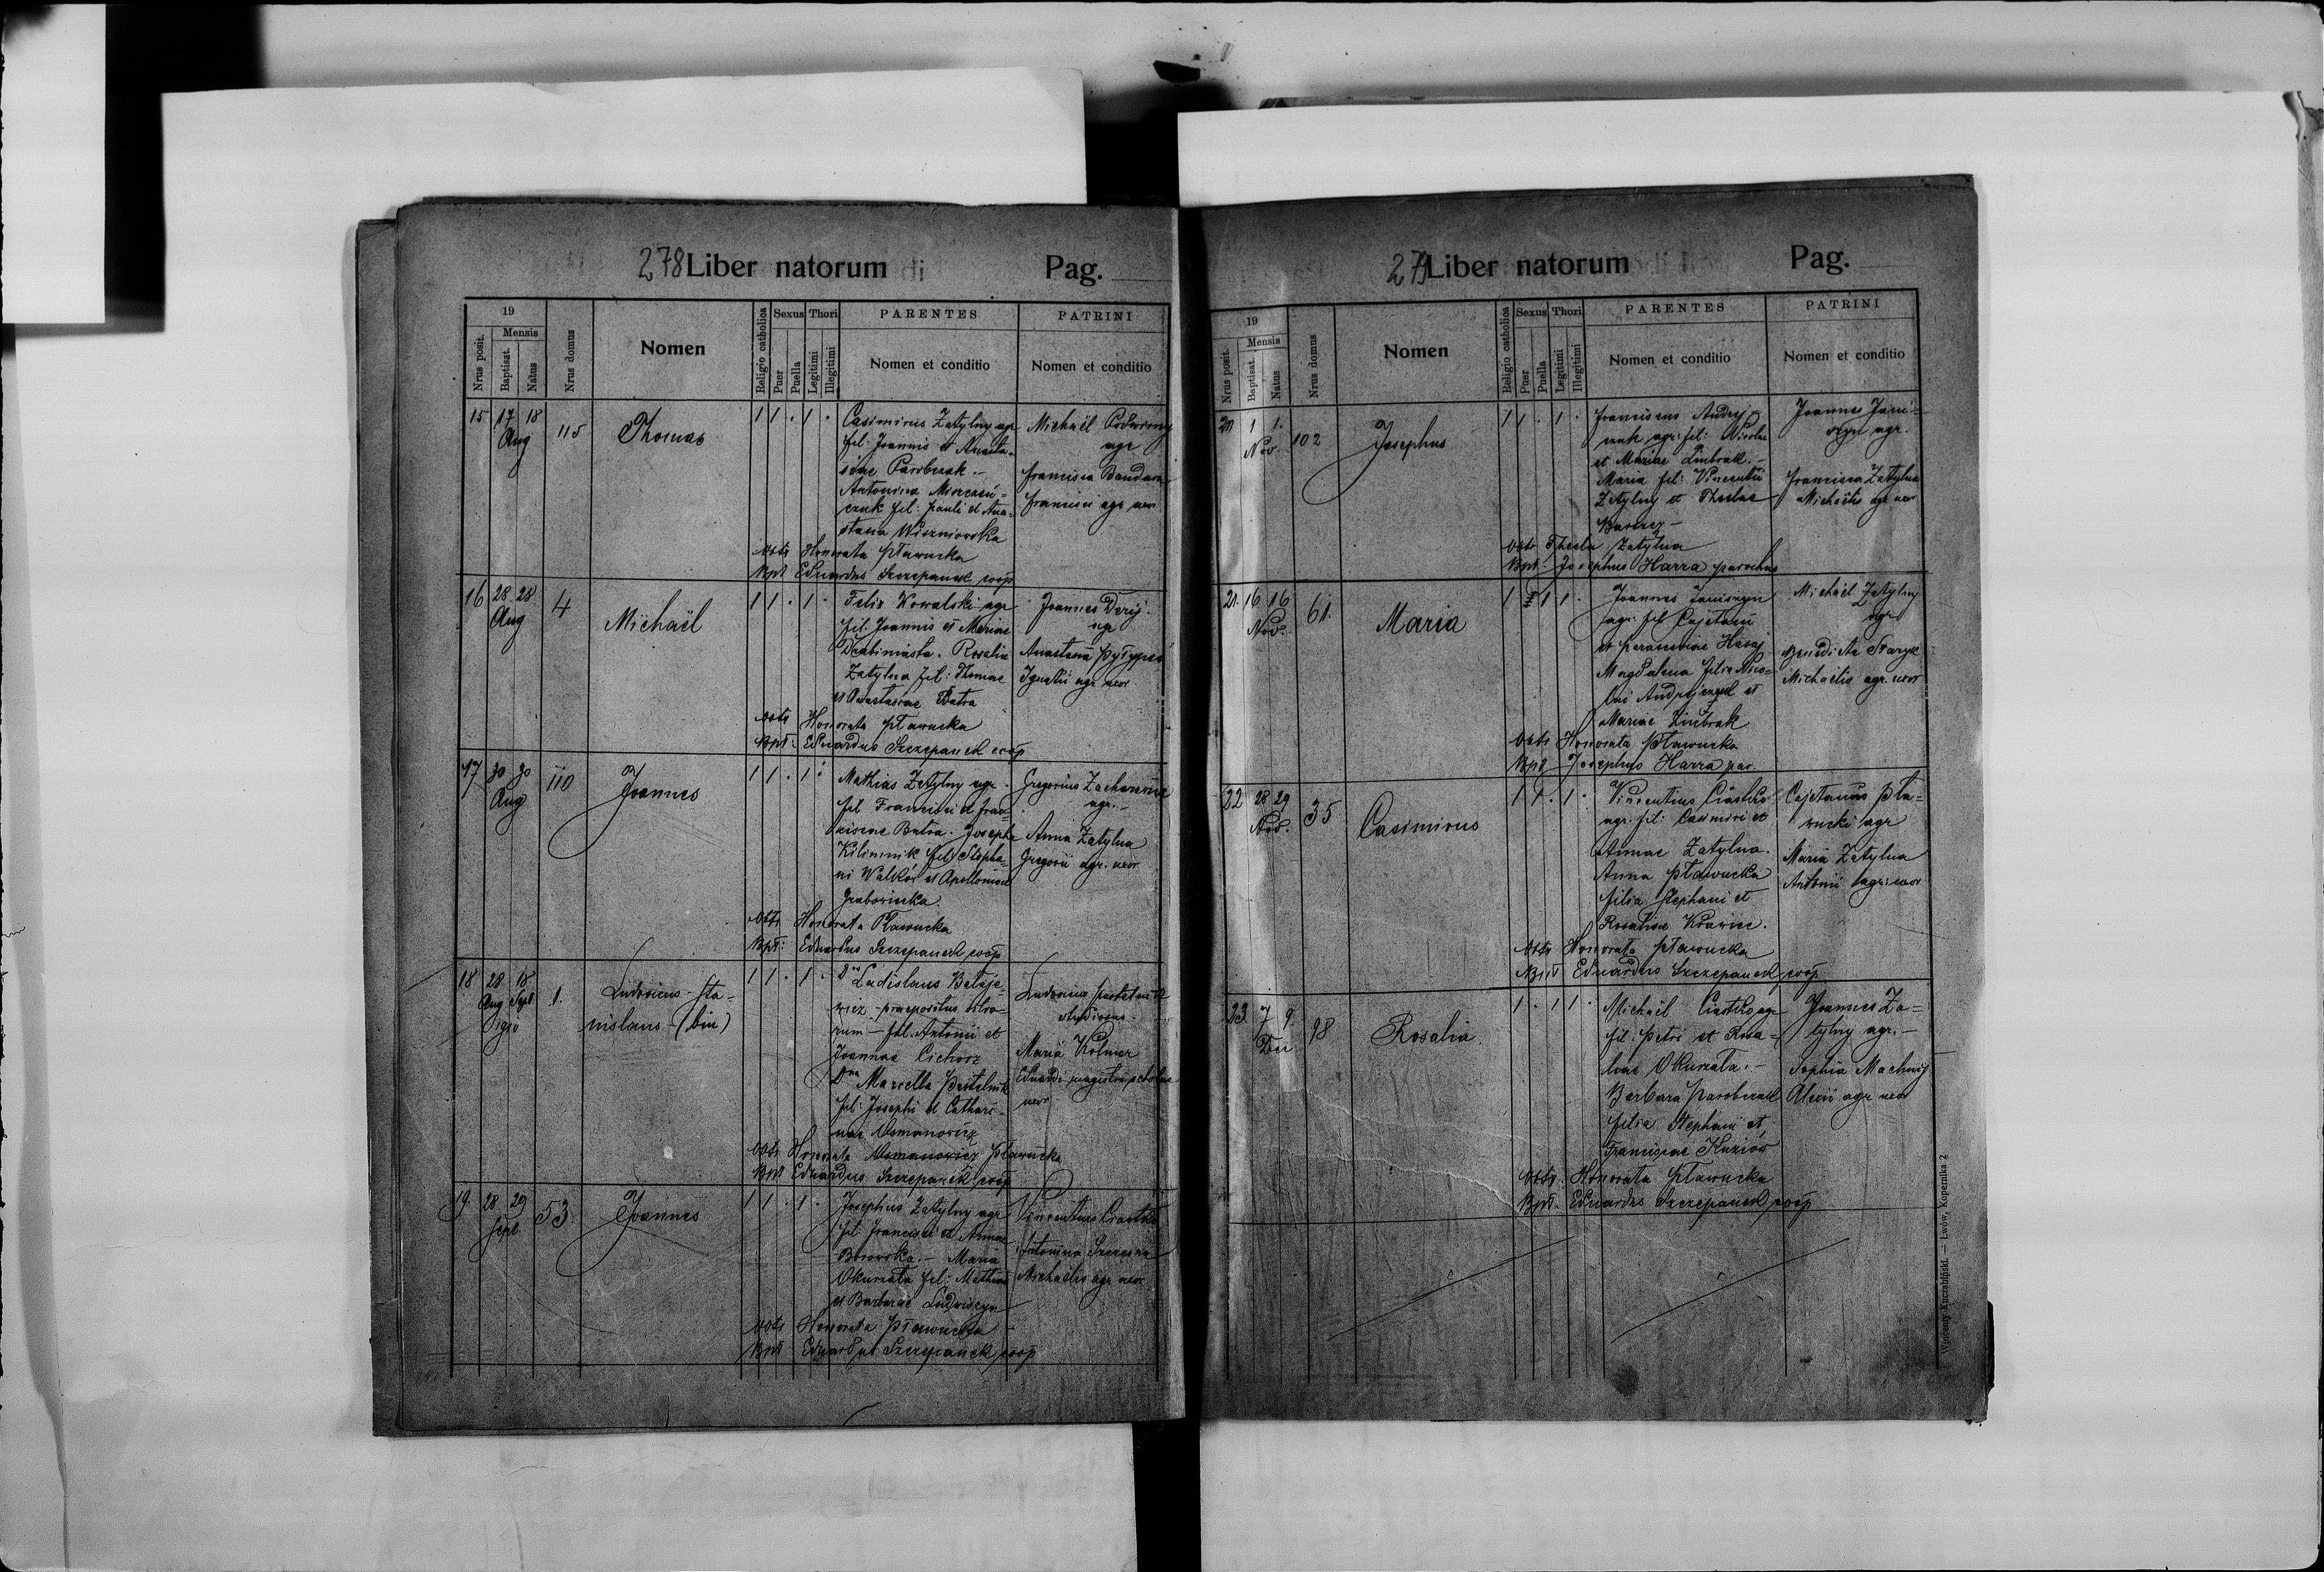 278 Liber natorum Pag.
19
Nrus posit.
Mensis
Baptisat.
Natus
Nrus domus
Nomen
Religio catholica
Sexus
Puer
Puella
Thori
Legitimi
Illegitimi
PARENTES
Nomen et conditio
PATRINI
Nomen et conditio
15 17 18 Aug 115 Thomas 1 1 . 1 .
Casimirus Zatylny agr
fil. Joannis et Anasta-
siae Parobczak.-
Antonina
czuk fil: Pauli et Ana-
stasia Wiszniowska
Michaël
agr
Francisca Bandura
Francisci agr uxor
Obst Honorata Pławucka
Bpt Eduardus Szczepanek coop
16 28 28 Aug 4 Michaël 1 1 . 1 .
Felix Kowalski agr
fil. Joannis et Mariae
Rosalia
Zatylna fil: Thomae
et Anastasiae Batra
Joannes Derij
agr
Anastasia
Ignatii agr uxor
Obst Honorata Pławucka
Bpt: Eduardus Szczepanek coop
17 30 30 Aug 110 Joannes 1 1 . 1 .
Mathias Zatylny agr.
fil Francisci et Fran-
ciscae Batra. Josepha
Kilimnik fil. Stepha-
ni Walków et Apolloniae
Grabowiecka.
Gregorius
agr.-
Anna Zatylna
Gregorii agr. uxor
Obst Honorata Pławucka
Bpt: Eduardus Szczepanek coop
18 28 18 Aug Sept 1. Ludovicus - Sta-
nislaus - (bin) 1 1 . 1 .
Dnus Ladislaus
wicz - praepositus
rum - fil. Antonii et
Joannae Cichosz
Dna Marcella Pastelnik
fil: Josephi et Cathari-
nae Osmanowicz
Ludovicus Pastelnik
studiosus
Maria Kolmer
Eduardi magistri scholae
uxor
Obst Honorata Osmanowicz Pławucka
Bpt Eduardus Szczepanek coop
19 28 29 Sept 53 Joannes 1 1 . 1 .
Josephus Zatylny agr
fil. Francisci et Annae
Borowska.- Maria
Okurzata fil: Mathiae
et Barbarae Ludwiszyn
Vincentius Ciastko
Antonina
Michaëlis agr uxor
Obst Honorata Pławucka
Bpt Eduardus Szczepanek coop
279 Liber natorum Pag.
19
Nrus posit.
Mensis
Baptisat.
Natus
Nrus domus
Nomen
Religio catholica
Sexus
Puer
Puella
Thori
Legitimi
Illegitimi
PARENTES
Nomen et conditio
PATRINI
Nomen et conditio
20 1 1. Nov. 102 Josephus 1 1 . 1 .
Franciscus Andrej-
czuk agr. fil: Nicolai
et Mariae Zimbrak.-
Maria fil: Vincentii
Zatylny et Theclae
Joannes Jani-
szyn agr.
Francisca Zatylna
Michaëlis agr uxor
Obst Thecla Zatylna
Bpt Josephus Harra parochus
21. 16 16 Nov. 61. Maria 1 1 1 .
Joannes Janiszyn
agr. fil Cajetani
et Parasceviae
Magdalena filia Nico-
lai Andrejczuk et
Mariae Zimbrak
Michaël Zatylny
agr
Benedicta
Michaëlis agr. uxor
Obst Honorata Pławucka
Bpt Josephus Harra par.
22 28 29 Nov. 35 Casimirus 1 1 . 1 .
Vincentius Ciastko
agr. fil. Casimiri et
Annae Zatylna.
Anna Pławucka
filia Stephani et
Rosaliae Krawiec.
Cajetanus Pła-
wucki agr
Maria Zatylna
Antonii agr. uxor
Obst Honorata Pławucka
Bpt Eduardus Szczepanek coop
23 7 9 Dec 98 Rosalia 1 . 1 1 .
Michaël Ciastko agr
fil: Petri et Rosa-
liae Okurzata.-
Barbara Parobczak
filia Stephani et
Franciscae Kuziow
Joannes Za-
tylny agr.-
Sophia Machnij
agr uxor
Obst. Honorata Pławucka
Bpt. Eduardus Szczepanek coop
Wincenty Kuczabiński — Lwów, Kopernika 2